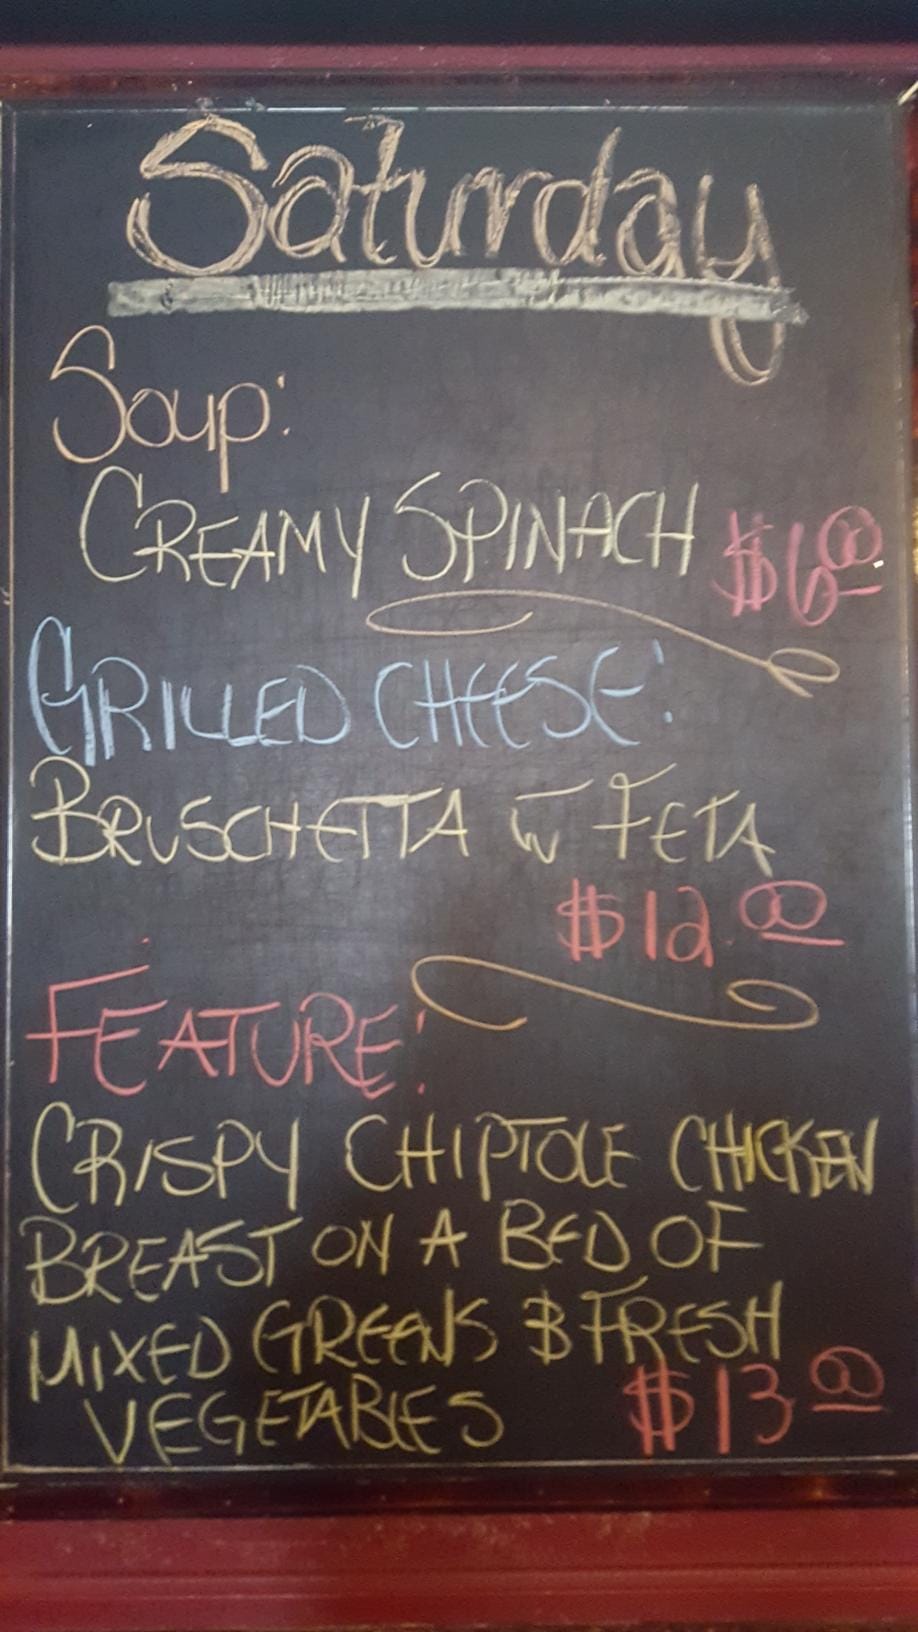 Saturday
Soup:
CREAMY SPINACH $6.00
GRILLED CHEESE:
BRUSCHETTA w FETA
$12.00
FEATURE:
CRISPY CHIPTOLE CHICKEN
BREAST ON A BED OF
MIXED GREENS & FRESH
VEGETABLES $13.00